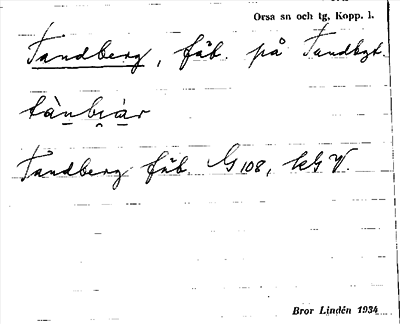 Orsa sn och tg, Kopp. l.
Tandberg, fäb. på Tandbgt.
tànbi̯àr
Tandberg fäb. G 108, kG V.
Bror Lindén 1934